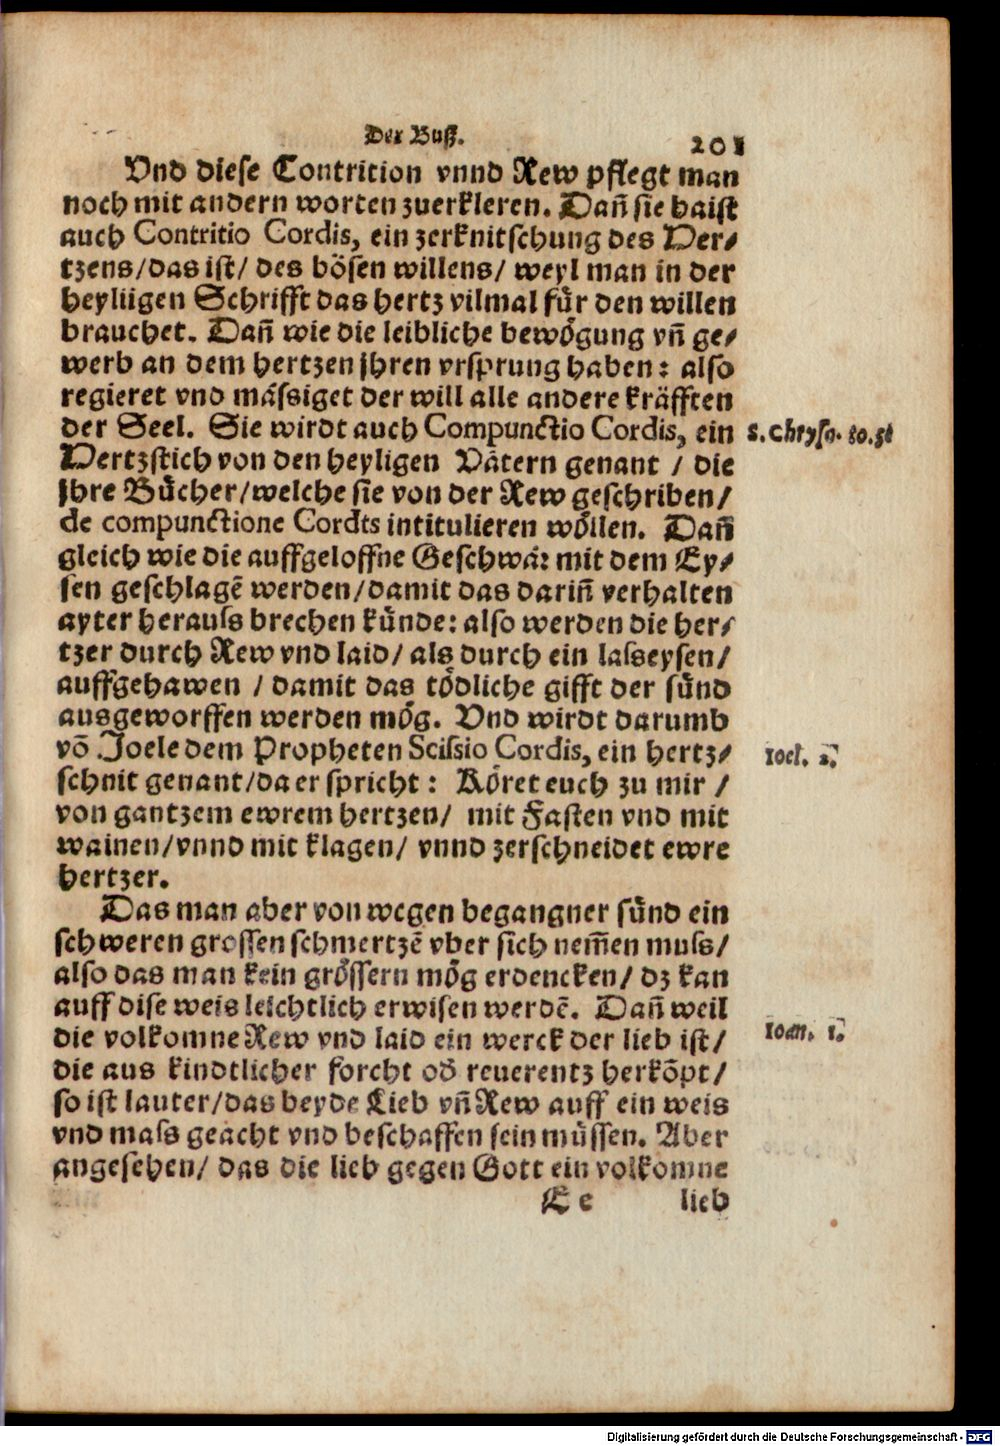 Der Buſſ.
201
Vnd dieſe Contrition vnnd Rew pflegt man
noch mit andern worten zuerkleren. Dañ ſie haiſt
auch Contritio Cordis, ein zerknitſchung des Her⸗
tzens/das iſt/ des böſen willens/ weyl man in der
heyliigen Schrifft das hertz vilmal für den willen
brauchet. Dañ wie die leibliche bewögung vñ ge⸗
werb an dem hertzen jhren vrſprung haben: alſo
regieret vnd mäſsiget der will alle andere kräfften
der Seel. Sie wirdt auch Compunctio Cordis, ein
S. Chryſo. to. 5
Hertzſtich von den heyligen Vätern genant / die
jhre Bücher/welche ſie von der Rew geſchriben/
de compunctione Cordts intitulieren wöllen. Dañ
gleich wie die auffgeloffne Geſchwär mit dem Ey⸗
ſen geſchlagē werden/damit das dariñ verhalten
ayter herauſs brechen künde: alſo werden die her⸗
tzer durch Rew vnd laid/ als durch ein laſseyſen/
auffgehawen / damit das tödliche gifft der ſünd
ausgeworffen werden mög. Vnd wirdt darumb
võ Joele dem Propheten Sciſsio Cordis, ein hertz⸗
Ioel. 2.
ſchnit genant/da er ſpricht: Köret euch zu mir /
von gantzem ewrem hertzen/ mit Faſten vnd mit
wainen/vnnd mit klagen/ vnnd zerſchneidet ewre
hertzer.
Das man aber von wegen begangner ſünd ein
ſchweren groſſen ſchmertzē vber ſich nem̃en muſs/
alſo das man kein gröſſern mög erdencken/ dz kan
auff diſe weis leichtlich erwiſen werdē. Dañ weil
die volkomne Rew vnd laid ein werck der lieb iſt/
Ioan. 1.
die aus kindtlicher forcht od̃ reuerentz herkõpt/
ſo iſt lauter/das beyde Lieb vñ Rew auff ein weis
vnd maſs geacht vnd beſchaffen ſein müſſen. Aber
angeſehen/ das die lieb gegen Gott ein volkomne
E e
lieb
Digitalisierung gefördert durch die Deutsche Forschungsgemeinschaft - DFG